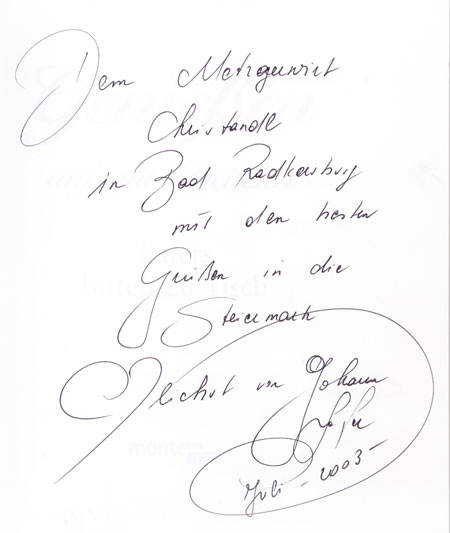 Dem Metzgerwirt
Christandl
in Bad Radkersburg
mit den besten
Grüßen in die
Steiermark
von Johann
Lafer
Juli - 2003 -